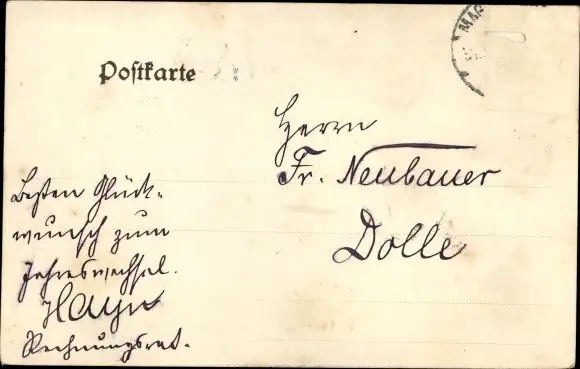 MAG
Postkarte
Herrn
Fr. Neubauer
Dolle
Besten Glück-
wunsch zum
Jahreswechsel.
Hayn
Rechnungsrat.